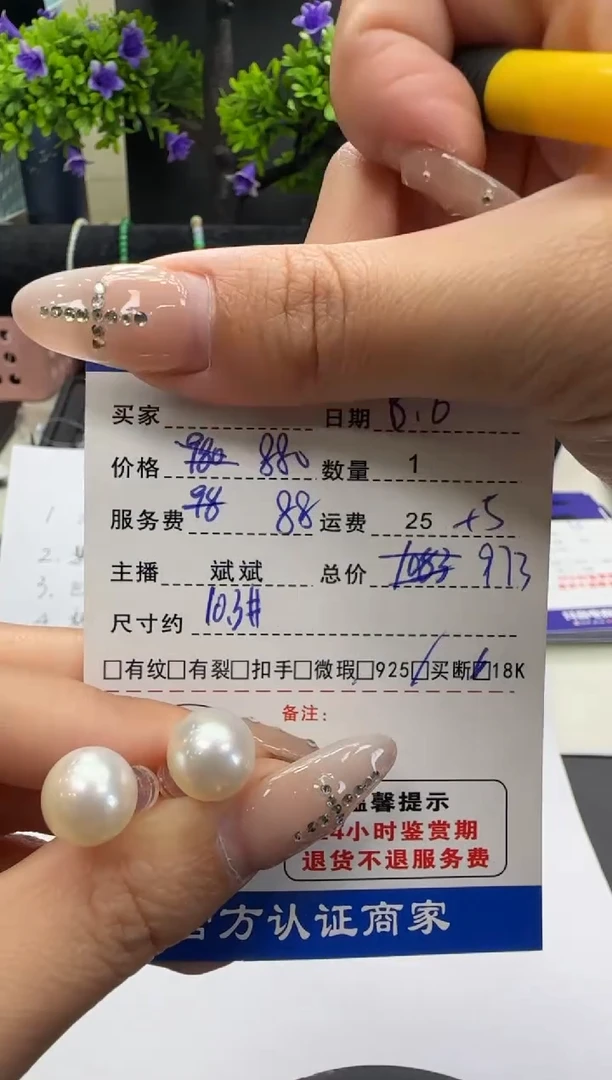 买家 日期
价格 980 880 数量 1
服务费 98 88 运费 25 +5
主播 斌斌 总价 1083 973
尺寸约 10.3#
□有纹□有裂□扣手□微瑕□925□买断□18K
备注：
温馨提示
24小时鉴赏期
退货不退服务费
官方认证商家
1
2.
3.
4